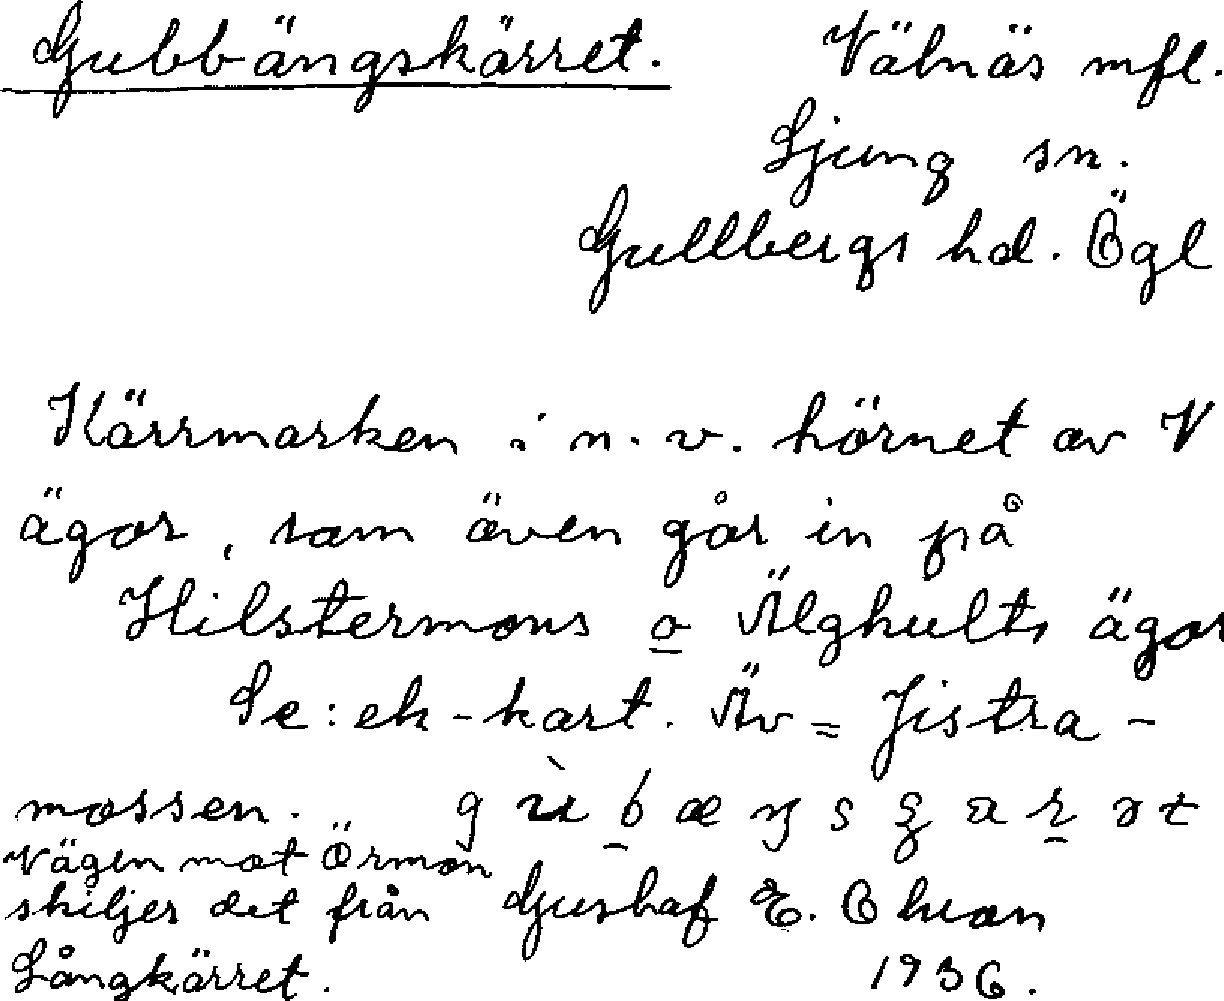 Gubbängskärret. Välnäs mfl.
Ljung sn.
Gullbergs hd. Ögl
Kärrmarken i n.v. hörnet av V
ägor, som även går in på
Hilstermons o Älghults ägor
Se: ek-kart. Äv = Jistra-
mossen.
Vägen mot Örmon
skiljer det från
Långkärret.
Gushaf E.
1936.